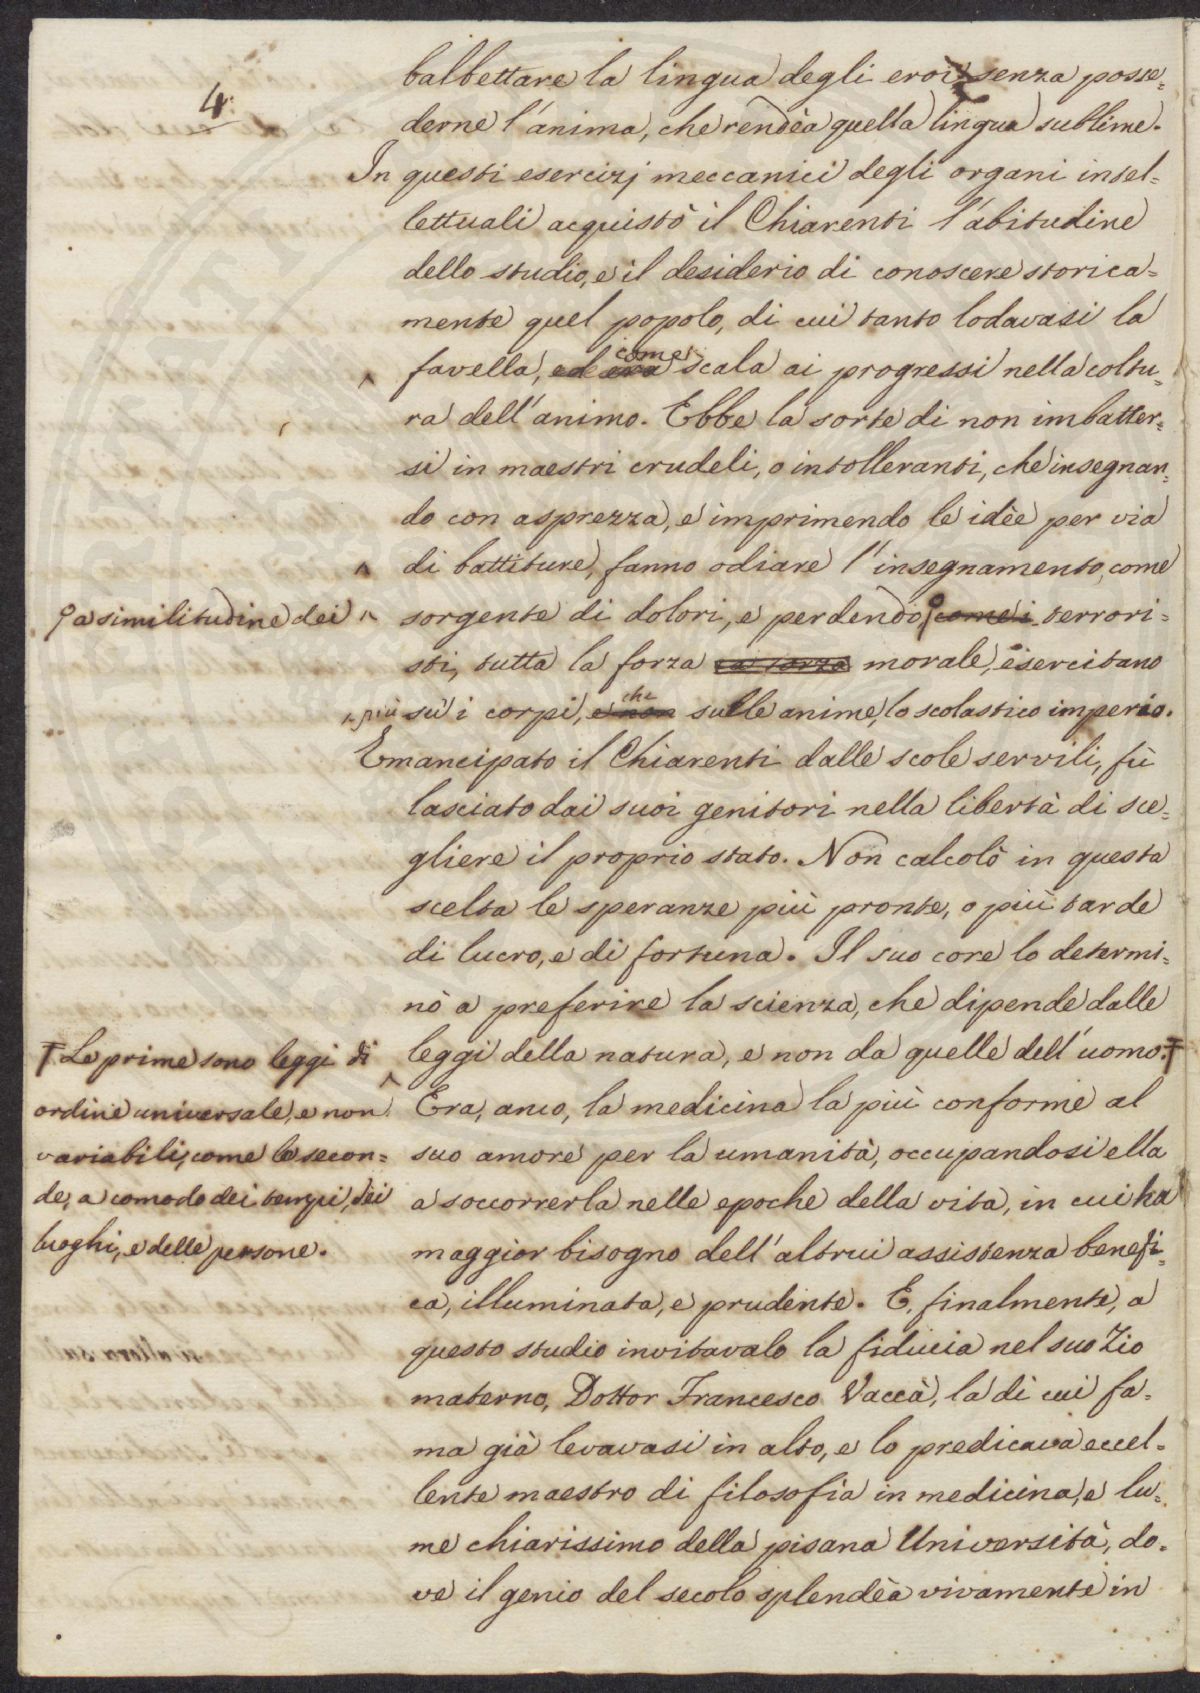 4.
balbettare la lingua degli eroi, senza posse-
derne l'anima, che rendèa quella lingua sublime.
In questi esercizj meccanici degli organi intel-
lettuali acquistò il Chiarenti l'abitudine
dello studio, e il desiderio di conoscere storica-
mente quel popolo, di cui tanto lodavasi la
favella, ed era come scala ai progressi nella coltu-
ra dell'animo. Ebbe la sorte di non imbatter-
si in maestri crudeli, o intolleranti, che insegnan-
do con asprezza, e imprimendo le idèe per via
di battiture, fanno odiare l'insegnamento, come
sorgente di dolori, e perdendo, come i terrori-
a similitudine dei
sti, tutta la forza la forza morale, esercitano
più su i corpi, e non che sulle anime, lo scolastico imperio.
Emancipato il Chiarenti dalle scole servili, fù
lasciato dai suoi genitori nella libertà di sce-
gliere il proprio stato. Non calcolò in questa
scelta le speranze più pronte, o più tarde
di lucro, e di fortuna. Il suo core lo determi-
nò a preferire la scienza, che dipende dalle
leggi della natura, e non da quelle dell'uomo. Ŧ
Ŧ Le prime sono leggi di
ordine universale, e non
variabili, come le secon-
de, a comodo dei tempi, dei
luoghi, e delle persone.
Era, anco, la medicina la più conforme al
suo amore per la umanità, occupandosi ella
a soccorrerla nelle epoche della vita, in cui ha
maggior bisogno dell'altrui assistenza benefi-
ca, illuminata, e prudente. E, finalmente, a
questo studio invitavalo la fiducia nel suo Zio
materno, Dottor Francesco Vaccà, la di cui fa-
ma già levavasi in alto, e lo predicava eccel-
lente maestro di filosofia in medicina, e lu-
me chiarissimo della pisana Università, do-
ve il genio del secolo splendèa vivamente in